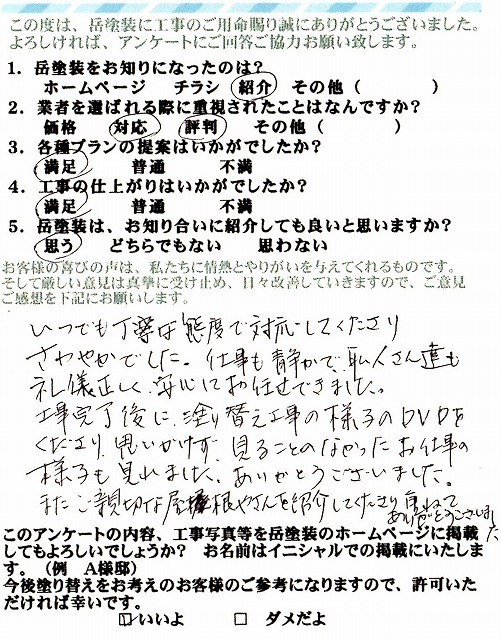 この度は、岳塗装に工事のご用命賜り誠にありがとうございました。
よろしければ、アンケートにご回答ご協力お願い致します。
1．岳塗装をお知りになったのは？
ホームページ　チラシ　紹介　その他（　　　　）
2．業者を選ばれる際に重視されたことはなんですか？
価格　対応　評判　その他（　　　　）
3．各種プランの提案はいかがでしたか？
満足　普通　不満
4．工事の仕上がりはいかがでしたか？
満足　普通　不満
5．岳塗装は、お知り合いに紹介しても良いと思いますか？
思う　どちらでもない　思わない
お客様の喜びの声は、私たちに情熱とやりがいを与えてくれるものです。
そして厳しい意見は真摯に受け止め、日々改善していきますので、ご意見
ご感想を下記にお願いします。
いつでも丁寧な態度で対応してくださり
さわやかでした。仕事も静かで、職人さん達も
礼儀正しく、安心してお任せできました。
工事完了後に、塗り替え工事の様子のDVDを
くださり、思いがけず、見ることのなかったお仕事の
様子も見れました、ありがとうございました。
またご親切な屋根やさんを紹介してくださり重ねて
ありがとうございました
このアンケートの内容、工事写真等を岳塗装のホームページに掲載
してもよろしいでしょうか？　お名前はイニシャルでの掲載にいたしま
す。（例　A様邸）
今後塗り替えをお考えのお客様のご参考になりますので、許可いた
だければ幸いです。
☑いいよ　□　ダメだよ